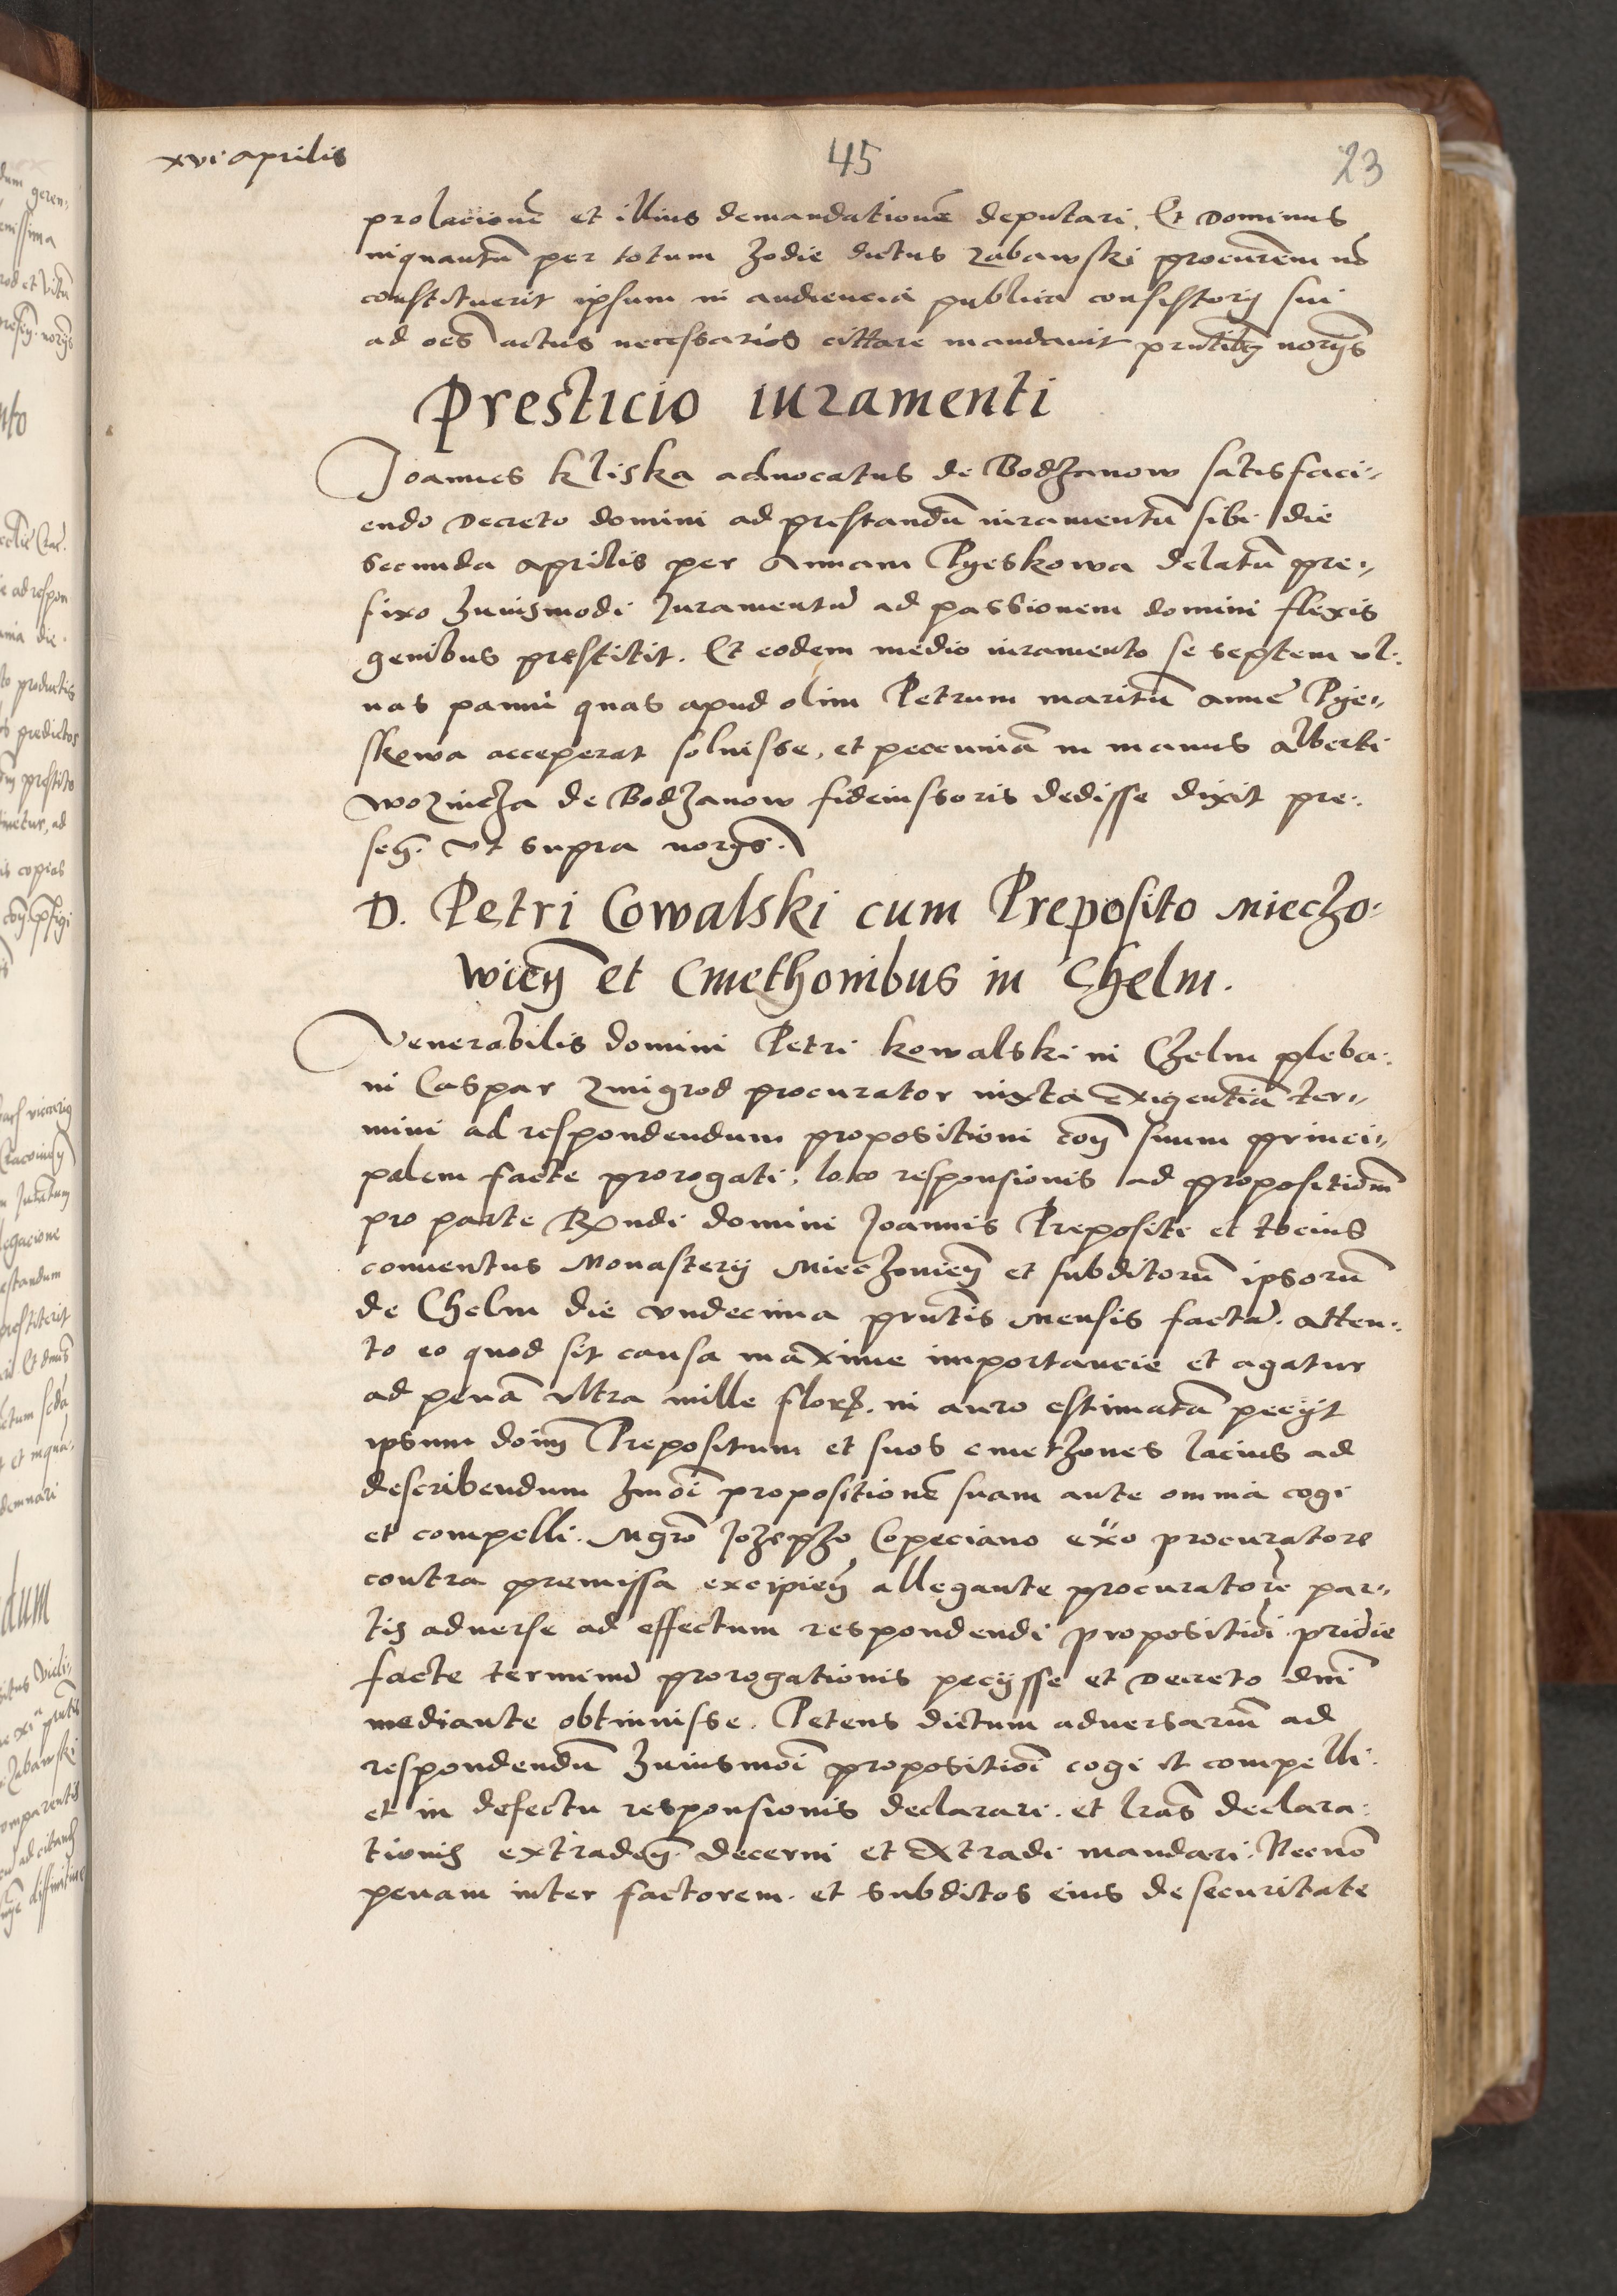 xvi aprilis
45
23
prolacionē et illius demandationē deputari. Et Dominus
inquantū per totum hodie dictus zabawski procurem nō
constituerit ipsum in audiencia publica consistorij sui
ad oēs actus necessarios cittare mandauit prntibq norijs
Presticio iuramenti
Joannes Kliska aduocatus de Bodzanow satisfaci„
endo Decreto domini ad prestandū iuramentū sibi die
secunda aprilis per Annam Pyeskowa delatū pre„
fixo huiusmodi Juramentū ad passionem domini flexis
genibus prestitit. Et eodem medio iuramento se septem vl„
nas panni quas apud olim Petrum maritū anne Pye„
skowa acceperat soluisse, et pecuniā in manus Alberti
woznicza de Bodzanow fideiussoris dedisse dixit pre„
sen. vt supra norijs.
D. Petri Cowalski cum Preposito Miecho„
wien et Cmethonibus in Chelm.
Venerabilis domini Petri kowalski in Chelm pleba„
ni Caspar zmigrod procurator iuxta exigentiā ter„
mini ad respondendum propositioni con suum princi„
palem facte prorogati, loco responsionis ad propositiōm
pro parte Rndi domini Joannis Prepositi et tocius
conuentus Monasterij Miechouien et subditorū ipsorū
de Chelm die vndecima prntis Mensis factā. atten„
to eo quod sit causa maxime importancie et agatur
ad penā vltra mille flor. in auro estimatā pecijt
ipsum doim Prepositum et suos cmethones lacius ad
describendum hmōi propositionē suam ante omnia cogi
et compelli. Mgrō Jozepho Copeciano exo procuratore
contra premissa excipien allegante procuratorē par„
tis aduerse ad effectum respondendi propositiōi pridie
facte terminū prorogationis pecijsse et Decreto dni
mediante obtinuisse. Petens dictum aduersariū ad
respondendū huiusmōi propositiōi cogi et compelli.
et in defectu responsionis declarari. et lras declara„
tionis extraden. decerni et extradi mandari. Necnō
penam inter factorem. et subditos eius de securitate